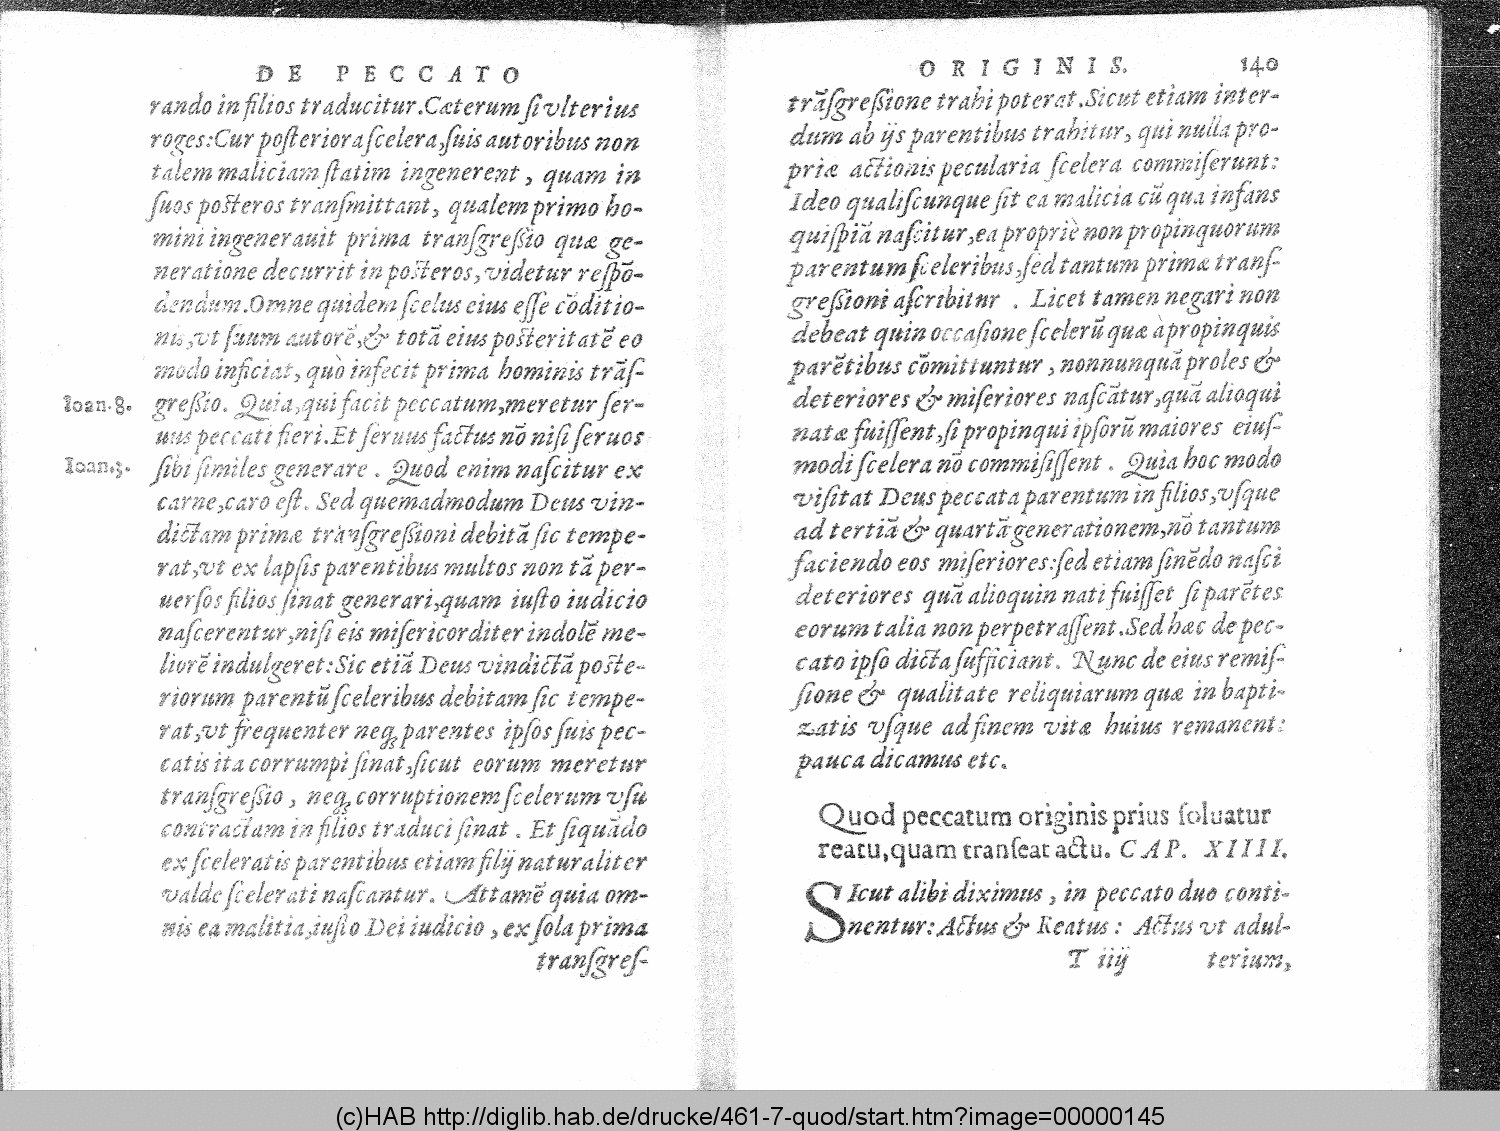 DE PECCATO
rando in filios traducitur. Cæterum ſi vlterius
roges: Cur poſteriora ſcelera, ſuis autoribus non
talem maliciam ſtatim ingenerent, quam in
ſuos poſteros tranſmittant, qualem primo ho-
mini ingenerauit prima tranſgreſſio quæ ge-
neratione decurrit in poſteros, videtur reſpõ-
dendum. Omne quidem ſcelus eius eſſe cõditio-
nis, vt ſuum autorẽ, & totã eius poſteritatẽ eo
modo inficiat, quò infecit prima hominis trãſ-
Ioan. 8. greſſio. Quia, qui facit peccatum, meretur ſer-
uus peccati fieri. Et ſeruus factus nõ niſi ſeruos
Ioan. 3. ſibi ſimiles generare. Quod enim naſcitur ex
carne, caro eſt. Sed quemadmodum Deus vin-
dictam primæ trãnſgreſſioni debitã ſic tempe-
rat, vt ex lapſis parentibus multos non tã per-
uerſos filios ſinat generari, quam iuſto iudicio
naſcerentur, niſi eis miſericorditer indolẽ me-
liorẽ indulgeret: Sic etiã Deus vindictã poſte-
riorum parentũ ſceleribus debitam ſic tempe-
rat, vt frequenter neq; parentes ipſos ſuis pec-
catis ita corrumpi ſinat, ſicut eorum meretur
tranſgreſſio, neq; corruptionem ſcelerum vſu
contractam in filios traduci ſinat. Et ſiquãdo
ex ſceleratis parentibus etiam filij naturaliter
valde ſcelerati naſcantur. Attamẽ quia om-
nis ea malitia, iuſto Dei iudicio, ex ſola prima
tranſgreſ-
ORIGINIS. 140
trãſgreſſione trahi poterat. Sicut etiam inter-
dum ab ijs parentibus trahitur, qui nulla pro-
priæ actionis pecularia ſcelera commiſerunt:
Ideo qualiſcunque ſit ea malicia cũ qua infans
quiſpiã naſcitur, ea propriè non propinquorum
parentum ſceleribus, ſed tantum primæ tranſ-
greſſioni aſcribitur. Licet tamen negari non
debeat quin occaſione ſcelerũ quæ à propinquis
parẽtibus cõmittuntur, nonnunquã proles &
deteriores & miſeriores naſcãtur, quã alioqui
natæ fuiſſent, ſi propinqui ipſorũ maiores eiuſ-
modi ſcelera nõ commiſiſſent. Quia hoc modo
viſitat Deus peccata parentum in filios, vſque
ad tertiã & quartã generationem, nõ tantum
faciendo eos miſeriores: ſed etiam ſinẽdo naſci
deteriores quã alioquin nati fuiſſet ſi parẽtes
eorum talia non perpetraſſent. Sed hæc de pec-
cato ipſo dicta ſufficiant. Nunc de eius remiſ-
ſione & qualitate reliquiarum quæ in bapti-
zatis vſque ad finem vitæ huius remanent:
pauca dicamus etc.
Quod peccatum originis prius ſoluatur
reatu, quam tranſeat actu. CAP. XIIII.
SIcut alibi diximus, in peccato duo conti-
nentur: Actus & Reatus: Actus vt adul-
T iiij terium,
(c)HAB http://diglib.hab.de/drucke/461-7-quod/start.htm?image=00000145